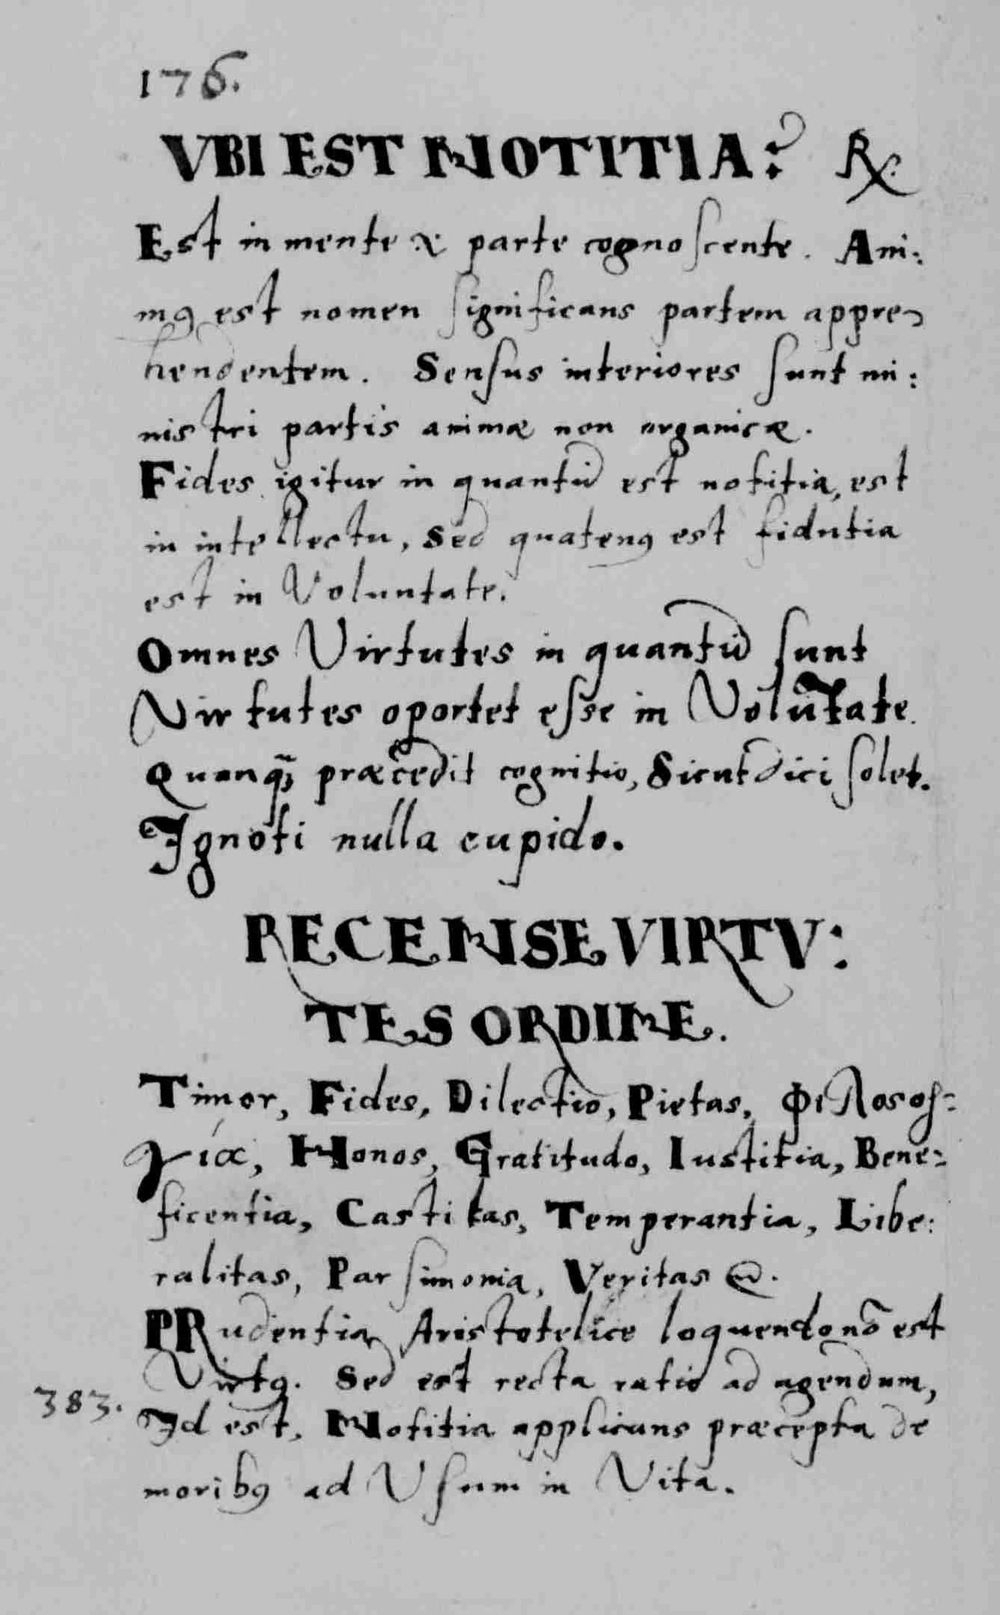 176.
VBI EST NOTITIA? ℞.
Est in mente & parte cognoscente. Ani:
mꝰ est nomen significans partem appre-
hendentem. Sensus interiores sunt mi:
nistri partis animæ non organicæ.
Fides igitur in quantũ est notitia, est
in intellectu, sed quatenꝰ est fidutia
est in Voluntate.
Omnes Virtutes in quantũ sunt
Virtutes oportet esse in Volũtate.
Quanqꝫ̃ præcedit cognitio, Sicut dici solet.
Ignoti nulla cupido.
RECENSE VIRTV:
TES ORDINE.
Timor, Fides, Dilectio, Pietas, Φιλοσοϛ-
γία, Honos, Gratitudo, Iustitia, Bene-
ficentia, Castitas, Temperantia, Libe:
ralitas, Parsimonia, Veritas
PRudentia Aristotelice loquendo nõ est
Virtꝰ. Sed est recta ratio ad agendum,
383.
Id est, Notitia applicans præcepta de
moribꝰ ad Vsum in Vita.